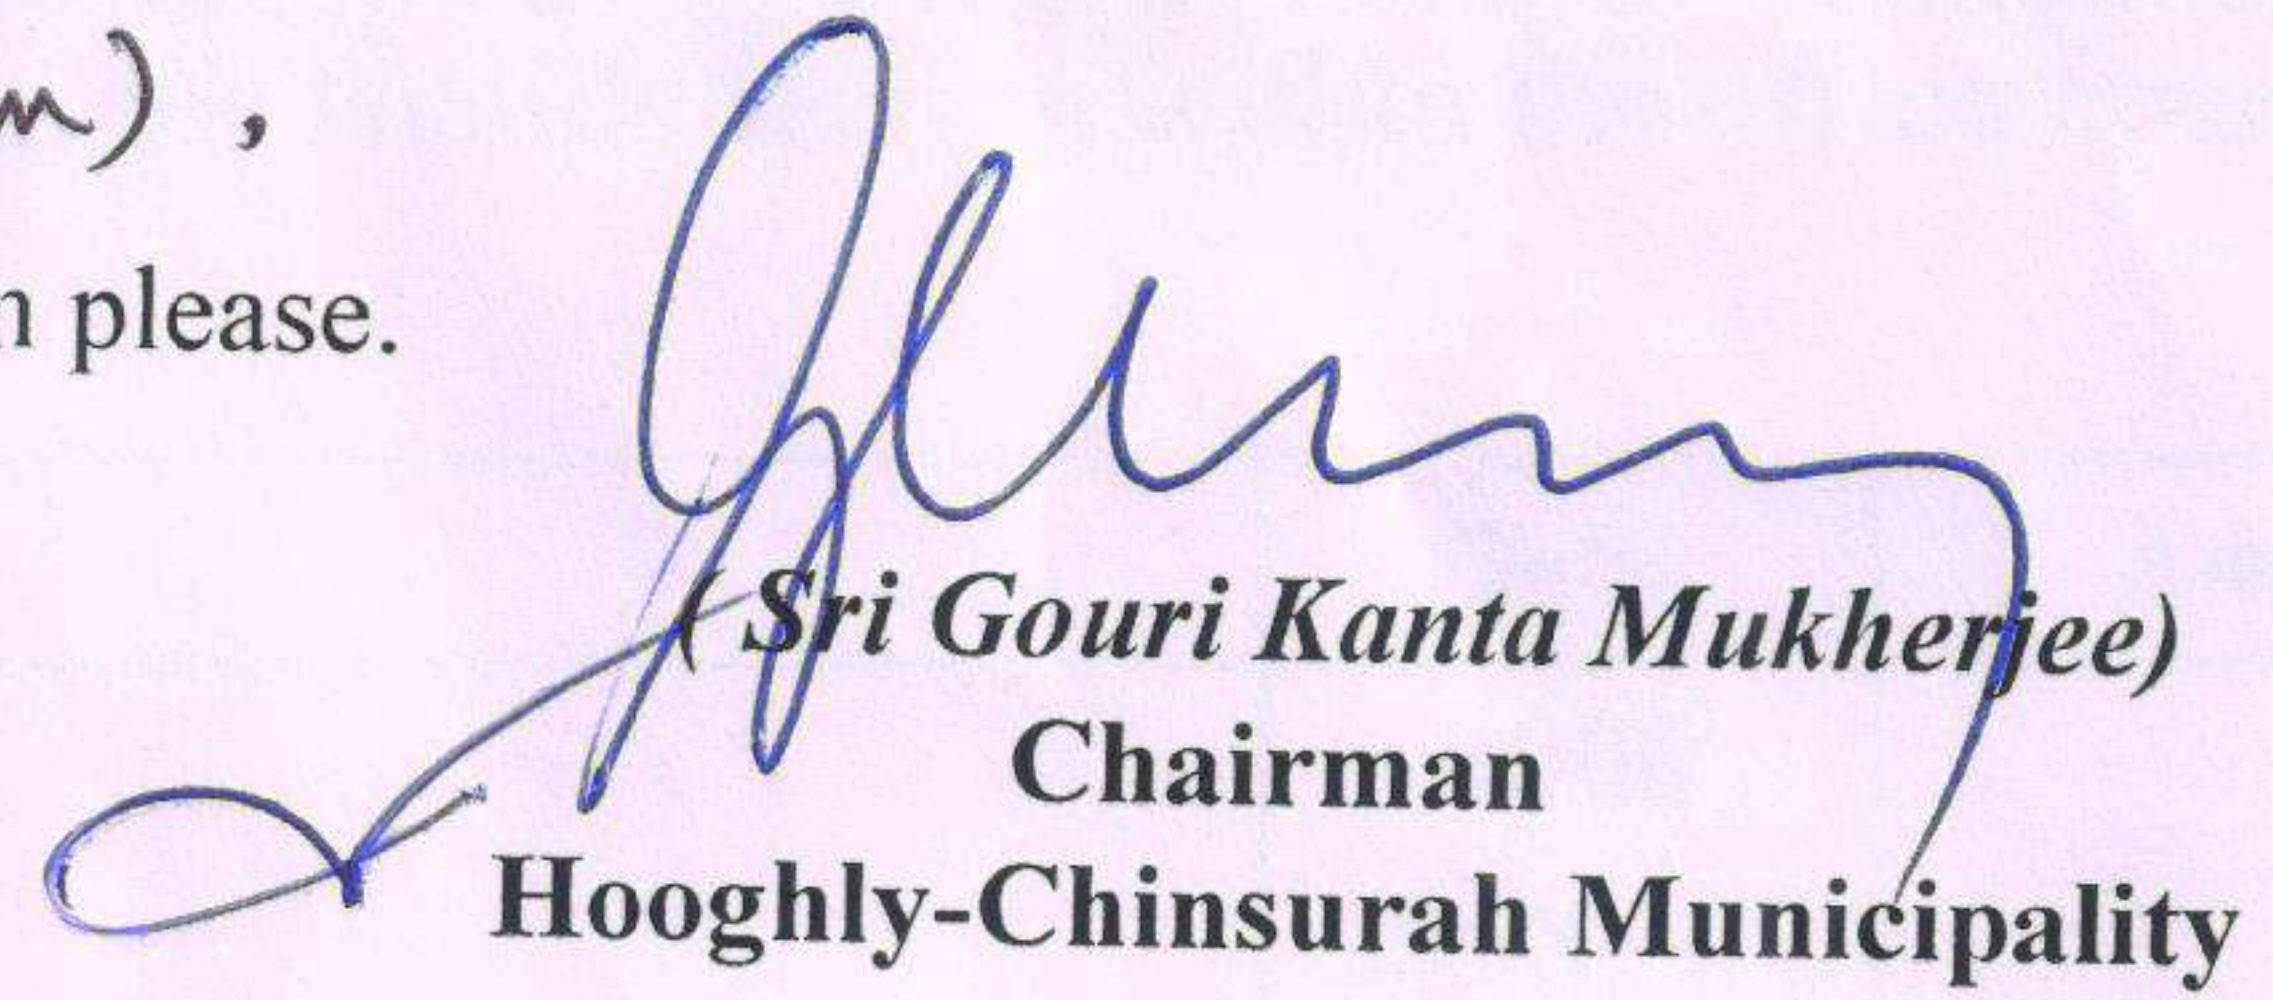 m) ,
n please.
( Sri Gouri Kanta Mukherjee)
Chairman
Hooghly-Chinsurah Municipality